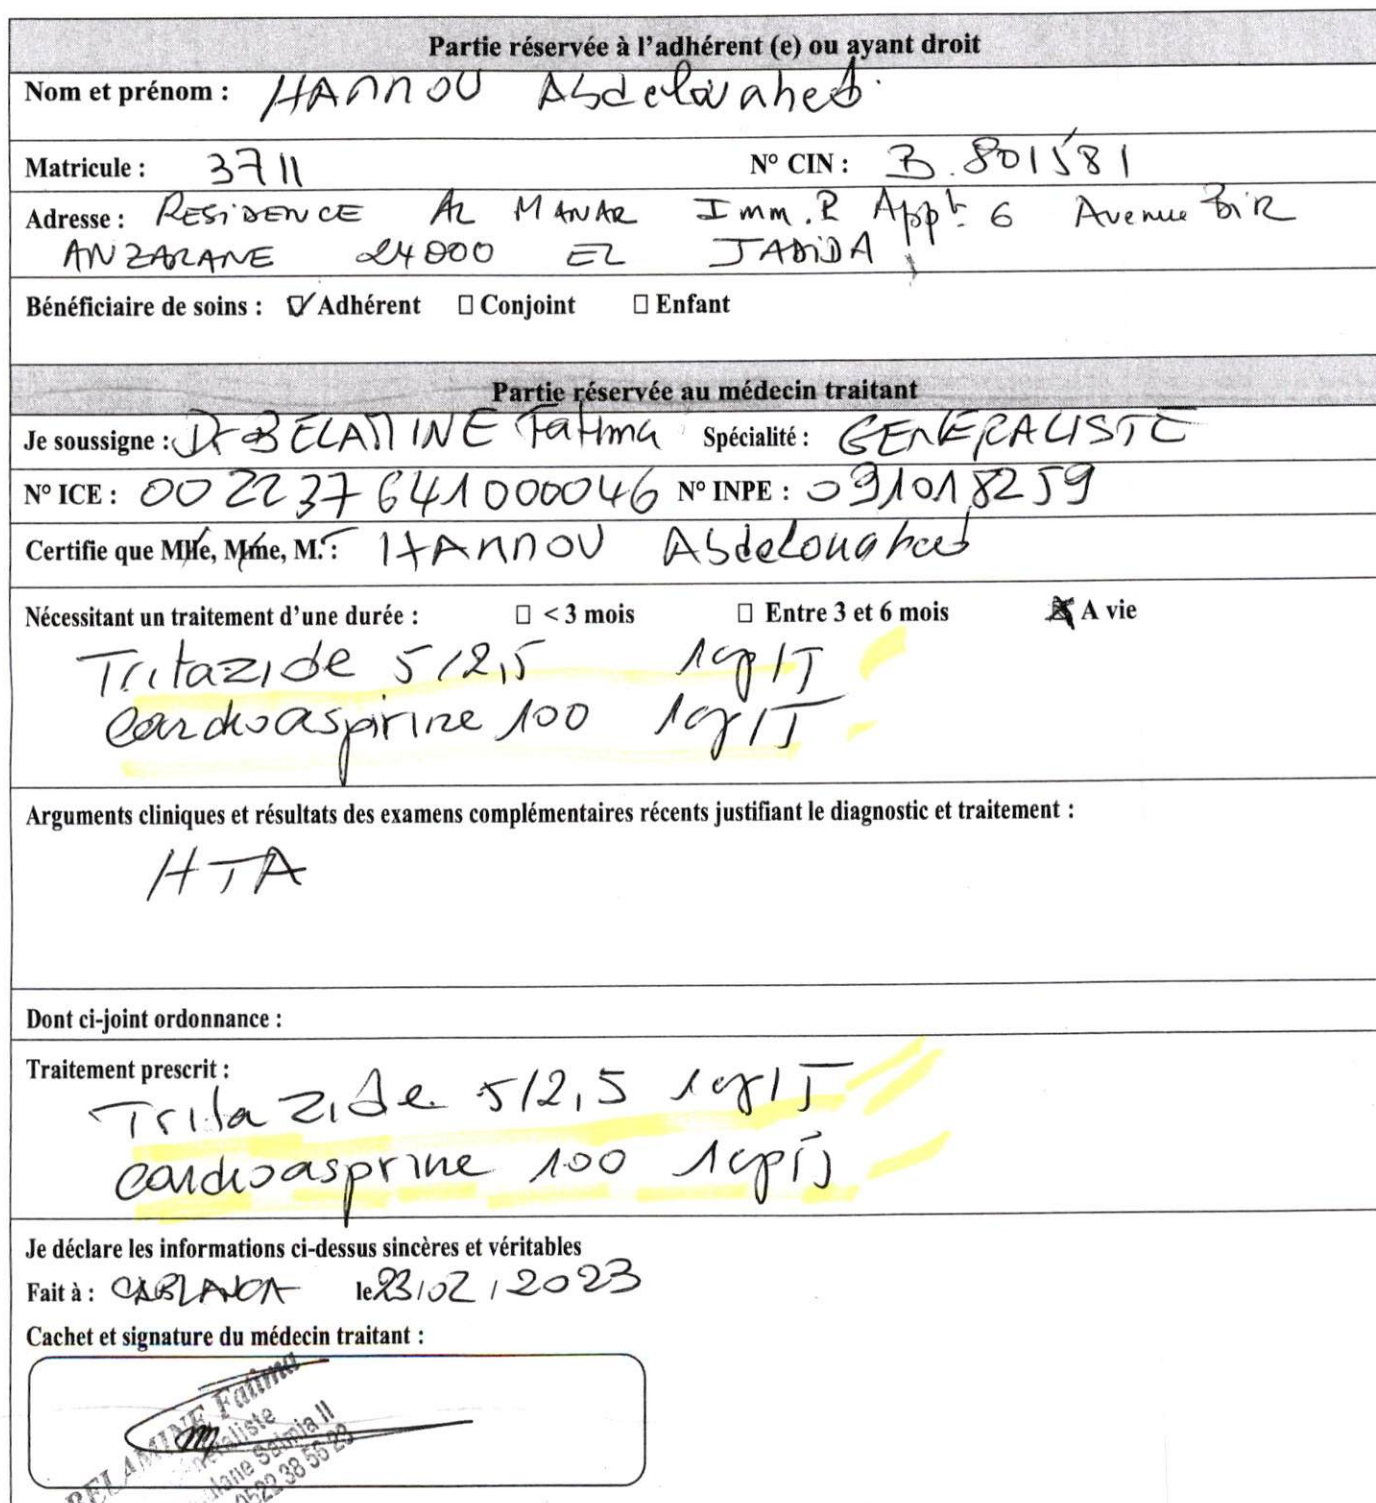 Partie réservée à l'adhérent (e) ou ayant droit
Nom et prénom : HANNOU Abdelouahed
Matricule : 3711 N° CIN : B.801581
Adresse : RESIDENCE AL MANAR Imm.R Appt 6 Avenue BiR
ANZARANE 24000 EL JADIDA
Bénéficiaire de soins : ☑ Adhérent ☐ Conjoint ☐ Enfant
Partie réservée au médecin traitant
Je soussigne : Dr BELAMINE Fatima Spécialité : GENERALISTE
N° ICE : 002237641000046 N° INPE : 091018259
Certifie que Mlle, Mme, M. : HANNOU Abdelouahed
Nécessitant un traitement d'une durée : ☐ < 3 mois ☐ Entre 3 et 6 mois ☒ A vie
Tritazide 5/2,5 1cp/J
Cardioaspirine 100 1cp/J
Arguments cliniques et résultats des examens complémentaires récents justifiant le diagnostic et traitement :
HTA
Dont ci-joint ordonnance :
Traitement prescrit :
Tritazide 5/2,5 1cp/J
cardioasprine 100 1cp/j
Je déclare les informations ci-dessus sincères et véritables
Fait à : CABLANCA le 23/02/2023
Cachet et signature du médecin traitant :
BELAMINE Fatima
Salmia II
0522 38 56 23